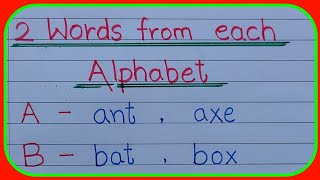 2 Words from each
Alphabet
A - ant , axe
B - bat , box